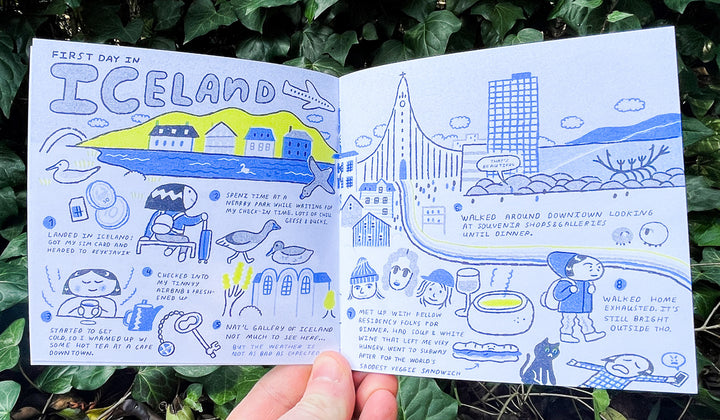 FIRST DAY IN
ICELAND
1
LANDED IN ICELAND:
GOT MY SIM CARD AND
HEADED TO REYKJAVIK
2
SPENZ TIME AT A
NEARBY PARK WHILE WAITING FOR
MY CHECK-IN TIME. LOTS OF CHILL
GEESE & DUCKS.
3
STARTED TO GET
COLD, SO I WARMED UP W/
SOME HOT TEA AT A CAFE
DOWNTOWN.
4
CHECKED INTO
MY TINNYY
AIRBNB & FRESH-
ENED UP
5
NAT'L GALLERY OF ICELAND
NOT MUCH TO SEE HERE...
BUT THE WEATHER IS
NOT AS BAD AS EXPECTED
THAT'S
BEAUTIFUL
6
WALKED AROUND DOWNTOWN LOOKING
AT SOUVENIR SHOPS & GALLERIES
UNTIL DINNER.
7
MET UP WITH FELLOW
RESIDENCY FOLKS FOR
DINNER. HAD SOUP & WHITE
WINE THAT LEFT ME VERY
HUNGRY. WENT TO SUBWAY
AFTER FOR THE WORLD'S
SADDEST VEGGIE SANDWICH
8
WALKED HOME
EXHAUSTED. IT'S
STILL BRIGHT
OUTSIDE THO.